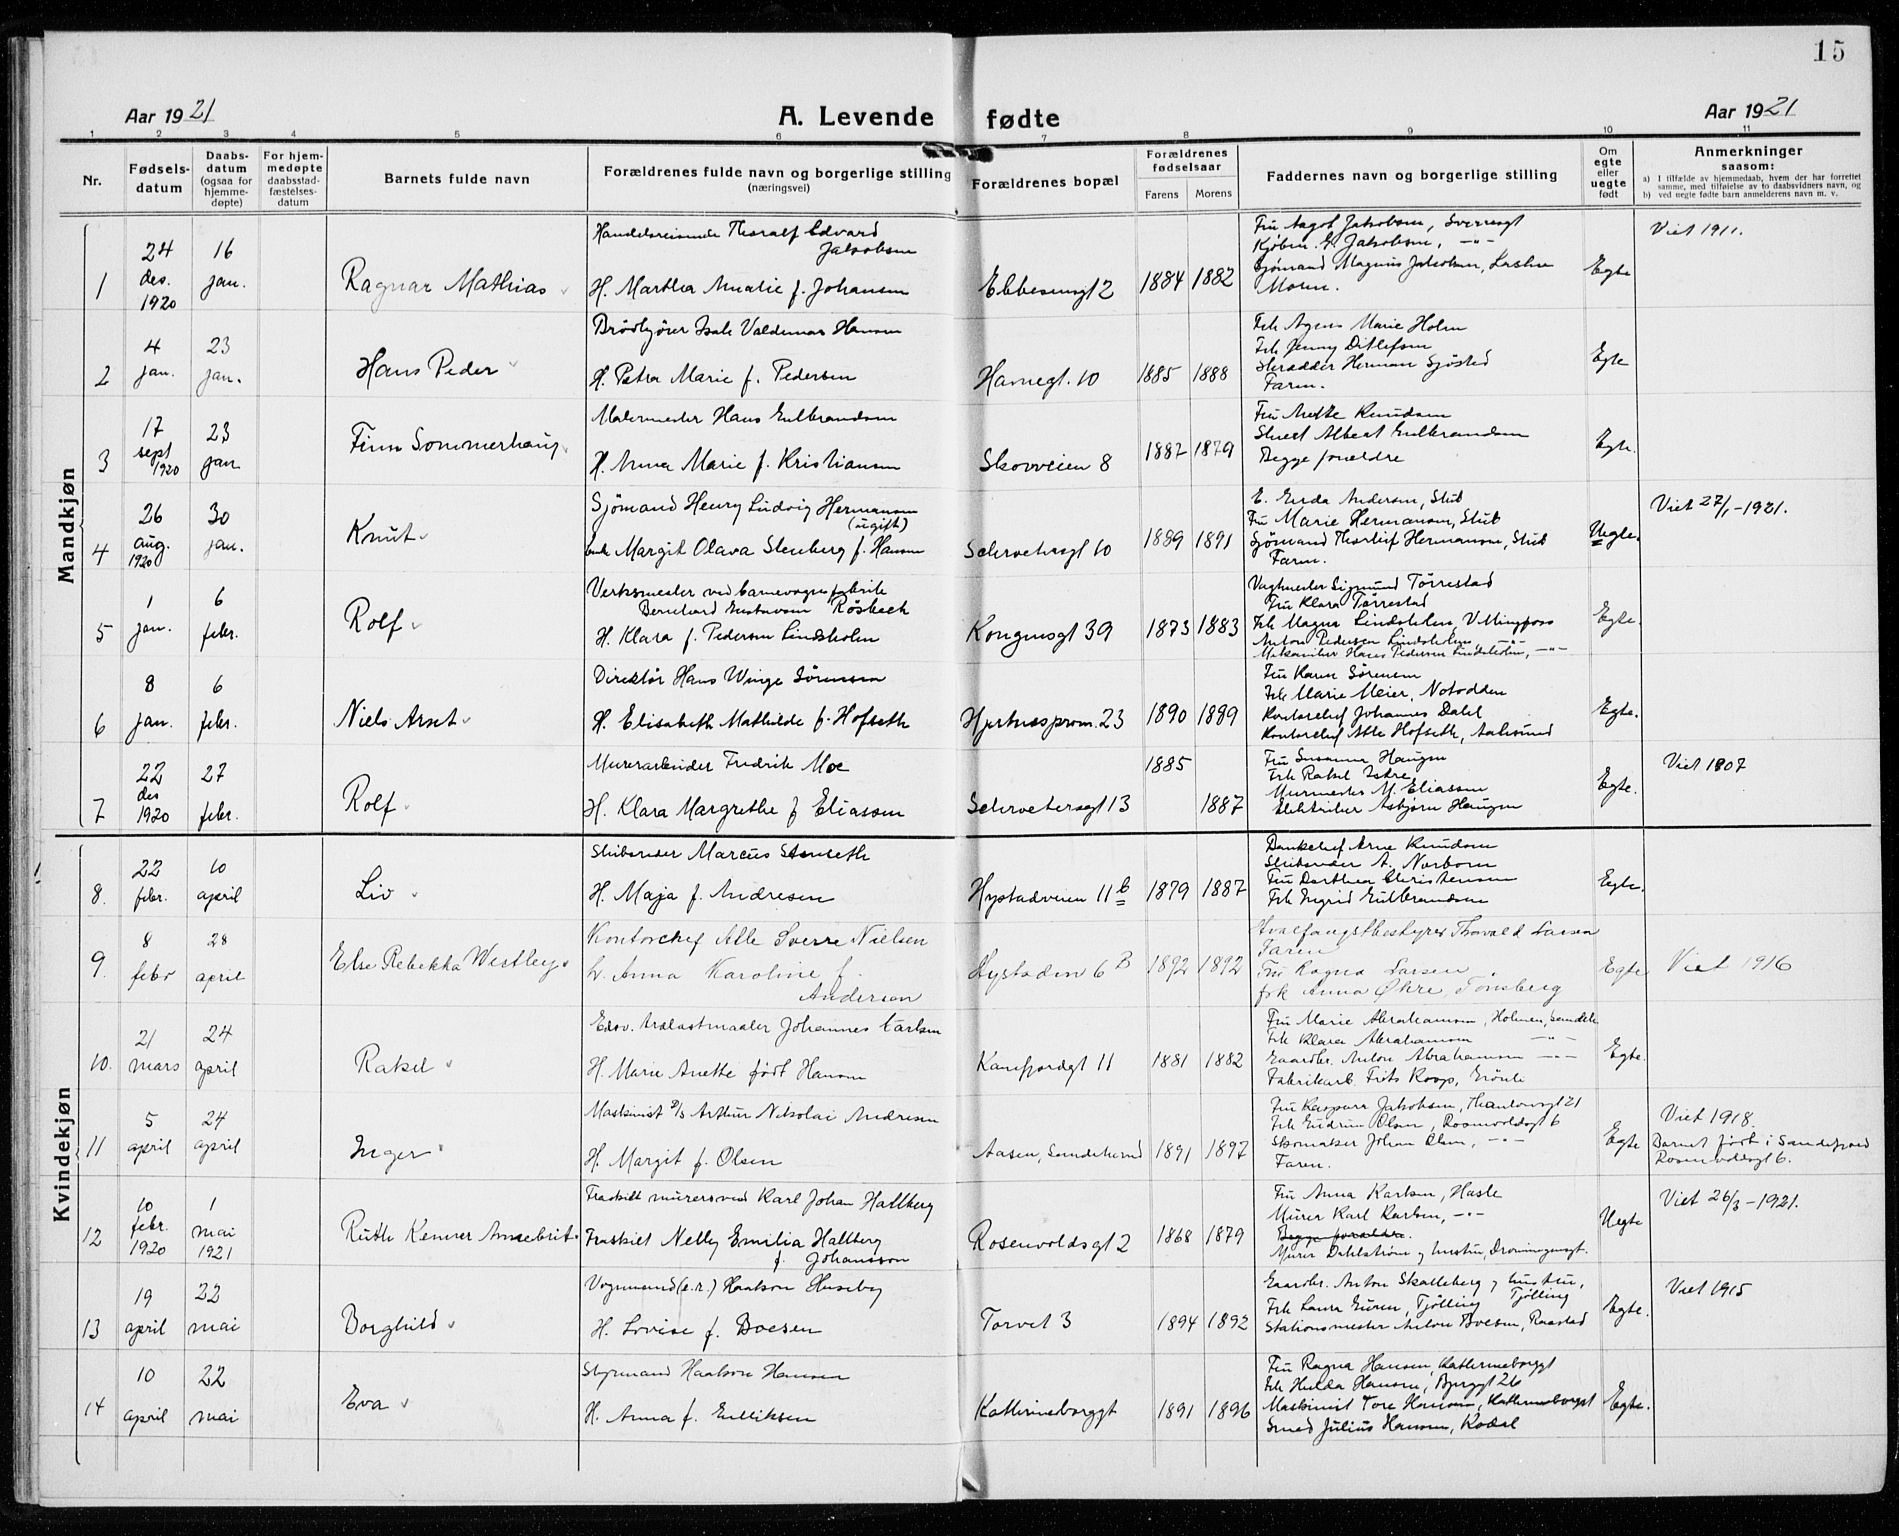 15
Aar 1921
A. Levende fødte
Aar 1921
1 2 3 4 5 6 7 8 9 10 11
Nr.
Fødsels-
datum
Daabs-
datum
(ogsaa for
hjemme-
døpte)
For hjem-
medøpte
daabsstad-
fæstelses-
datum
Barnets fulde navn
Forældrenes fulde navn og borgerlige stilling
(næringsvei)
Forældrenes bopæl
Forældrenes
fødselsaar
Farens Morens
Faddernes navn og borgerlige stilling
Om
egte
eller
uegte
født
Anmerkninger
saasom:
a) I tilfælde av hjemmedaab, hvem der har forrettet
samme, med tilføielse av to daabsvidners navn, og
b) ved uegte fødte barn anmelderens navn m. v.
Mandkjøn
1
24 des. 1920
16 jan.
Ragnar Mathias
Handelsreisende Thoralf Edvard
Jakobsen
H. Martha Amalie f. Johansen
Ebbesensgt 2
1884 1882
Fru Aagot Jakobsen, Sverresgt
Kjøbm. G. Jakobsen, -"-
Sjømand Magnus Jakobsen,
Moren.
Egte
Viet 1911.
2
4 jan.
23 jan.
Hans Peder
Isak Valdemar Hansen
H. Petra Marie f. Pedersen
Havnegt. 10
1885 1888
Frk Agnes Marie Holm
Frk Jenny Ditlefsen
Skrædder Herman Sjøsted
Faren.
Egte
3
17 sept 1920
23 jan
Finn Sommerhaug
Malermester Hans Gulbrandsen
H. Anna Marie f. Kristiansen
Skovveien 8
1887 1879
Fru Anette Knudsen
Albert Gulbrandsen
Begge forældre
Egte.
4
26 aug. 1920
30 jan.
Knut
Sjømand Henry Ludvig Hermansen
(ugift)
Margit Olava Stenberg f. Hansen
10
1889 1891
E. Gusda Andersen, Stub
Fru Marie Hermansen, Stub
Sjømand Thorleif Hermansen, Stub
Faren.
Uegte.
Viet 27/1-1921.
5
1 jan.
6 febr.
Rolf
Verksmester ved barnevognfabrik
Bernhard Gustavsen Røsbech
H. Klara f. Pedersen Lindsholm
Kongensgt 39
1873 1883
Vagtmester Sigmund Tørrestad
Fru Klara Tørrestad
Frk Magna Lindsholm,
Anton Pedersen Lindsholm -"-
Mekaniker Hans Pedersen Lindsholm, -"-
Egte.
6
8 jan.
6 febr.
Niels Arnt
Direktør Hans Winge Sørensen
H. Elisabeth Mathilde f. Hofseth
Hjertnesprom. 23
1890 1889
Fru Karen Sørensen
Frk Marie Meier, Notodden
Kontorchef Johannes Dahl
Kontorchef Atle Hofseth, Aalesund
Egte.
7
22 des 1920
27 febr.
Rolf
Murerarbeider Fredrik Moe
H. Klara Margrethe f Eliassen
13
1885 1887
Fru Susanna Haugen
Frk Rakel
Murmester M. Eliassen
Elektriker Asbjørn Haugen
Egte.
Viet 1907
Kvindekjøn
8.
22 febr.
10 april
Liv
Skibsreder Marcus Stenseth
H. Maja f. Andresen
Hystadveien 11 b
1879 1887
Bankchef Arne Knudsen
Skibsreder A. Norbom
Fru Dorthea Christensen
Frk Ingrid Gulbrandsen
Egte.
9.
8 febr
28 april
Else Rebekka Westbey
Kontorchef Atle Sverre Nielsen
h. Anna Karoline f.
Andersen
Hystadvn 6 B
1892 1892
Hvalfangstbestyrer Thorvald Larsen
Faren
Fru Ragna Larsen
frk Anna Øhre, Tønsberg
Egte
Viet 1916
10.
21 mars
24 april
Rakel
Edsv. trælastmaaler Johannes Carlsen
H. Marie Anette født Hansen
Kamfjordgt 11
1881 1882
Fru Marie Abrahamsen, Holmen,
Frk Klara Abrahamsen -"-
Gaardbr. Anton Abrahamsen -"-
Fabrikarb. Frits Koop,
Egte.
11
5 april
24 april
Inger
Maskinist D/S Arthur Nikolai Andresen
H. Margit f. Olsen
Aasen, Sandeherred
1891 1897
Fru Kaspara Jakobsen, 21
Frk Gudrun Olsen, Rosenvoldsgt 6
Skomaker Johan Olsen, -"-
Faren.
Egte
Viet 1918.
Barnet født i Sandefjord
Rosenvoldsgt 6.
12
10 febr. 1920
1 mai 1921
Ruth Kenner Annebrit
Fraskilt murersvend Karl Johan Hallberg
Fraskilt Nelly Emilia Hallberg
f. Johansson
Rosenvoldsgt 2
1868 1879
Fru Anna Karlsen, Hasle
Murer Karl Karlsen, -"-
Begge forældre.
Murer Dahlstrøm og hustru, Dronningensgt.
Uegte
Viet 26/3-1921.
13
19 april
22 mai
Borghild
Vognmand (e.r.) Haakon Huseby
H. Lovise f. Boesen
Torvet 3
1894 1892
Gaardbr. Anton Skalleberg og hustru,
Tjølling
Frk Laura Guren, Tjølling
Stationsmester Anton Boesen, Raastad
Egte.
Viet 1915
14
10 april
22 mai
Eva
Styrmand Haakon Hansen
H. Anna f. Gulliksen
Kathrineborggt
1891 1896
Fru Ragna Hansen, Kathrineborggt
Frk Hulda Hansen, Bjerggt 26
Maskinist Tore Hansen, Kathrineborggt
Smed Julius Hansen, Kodal
Egte.